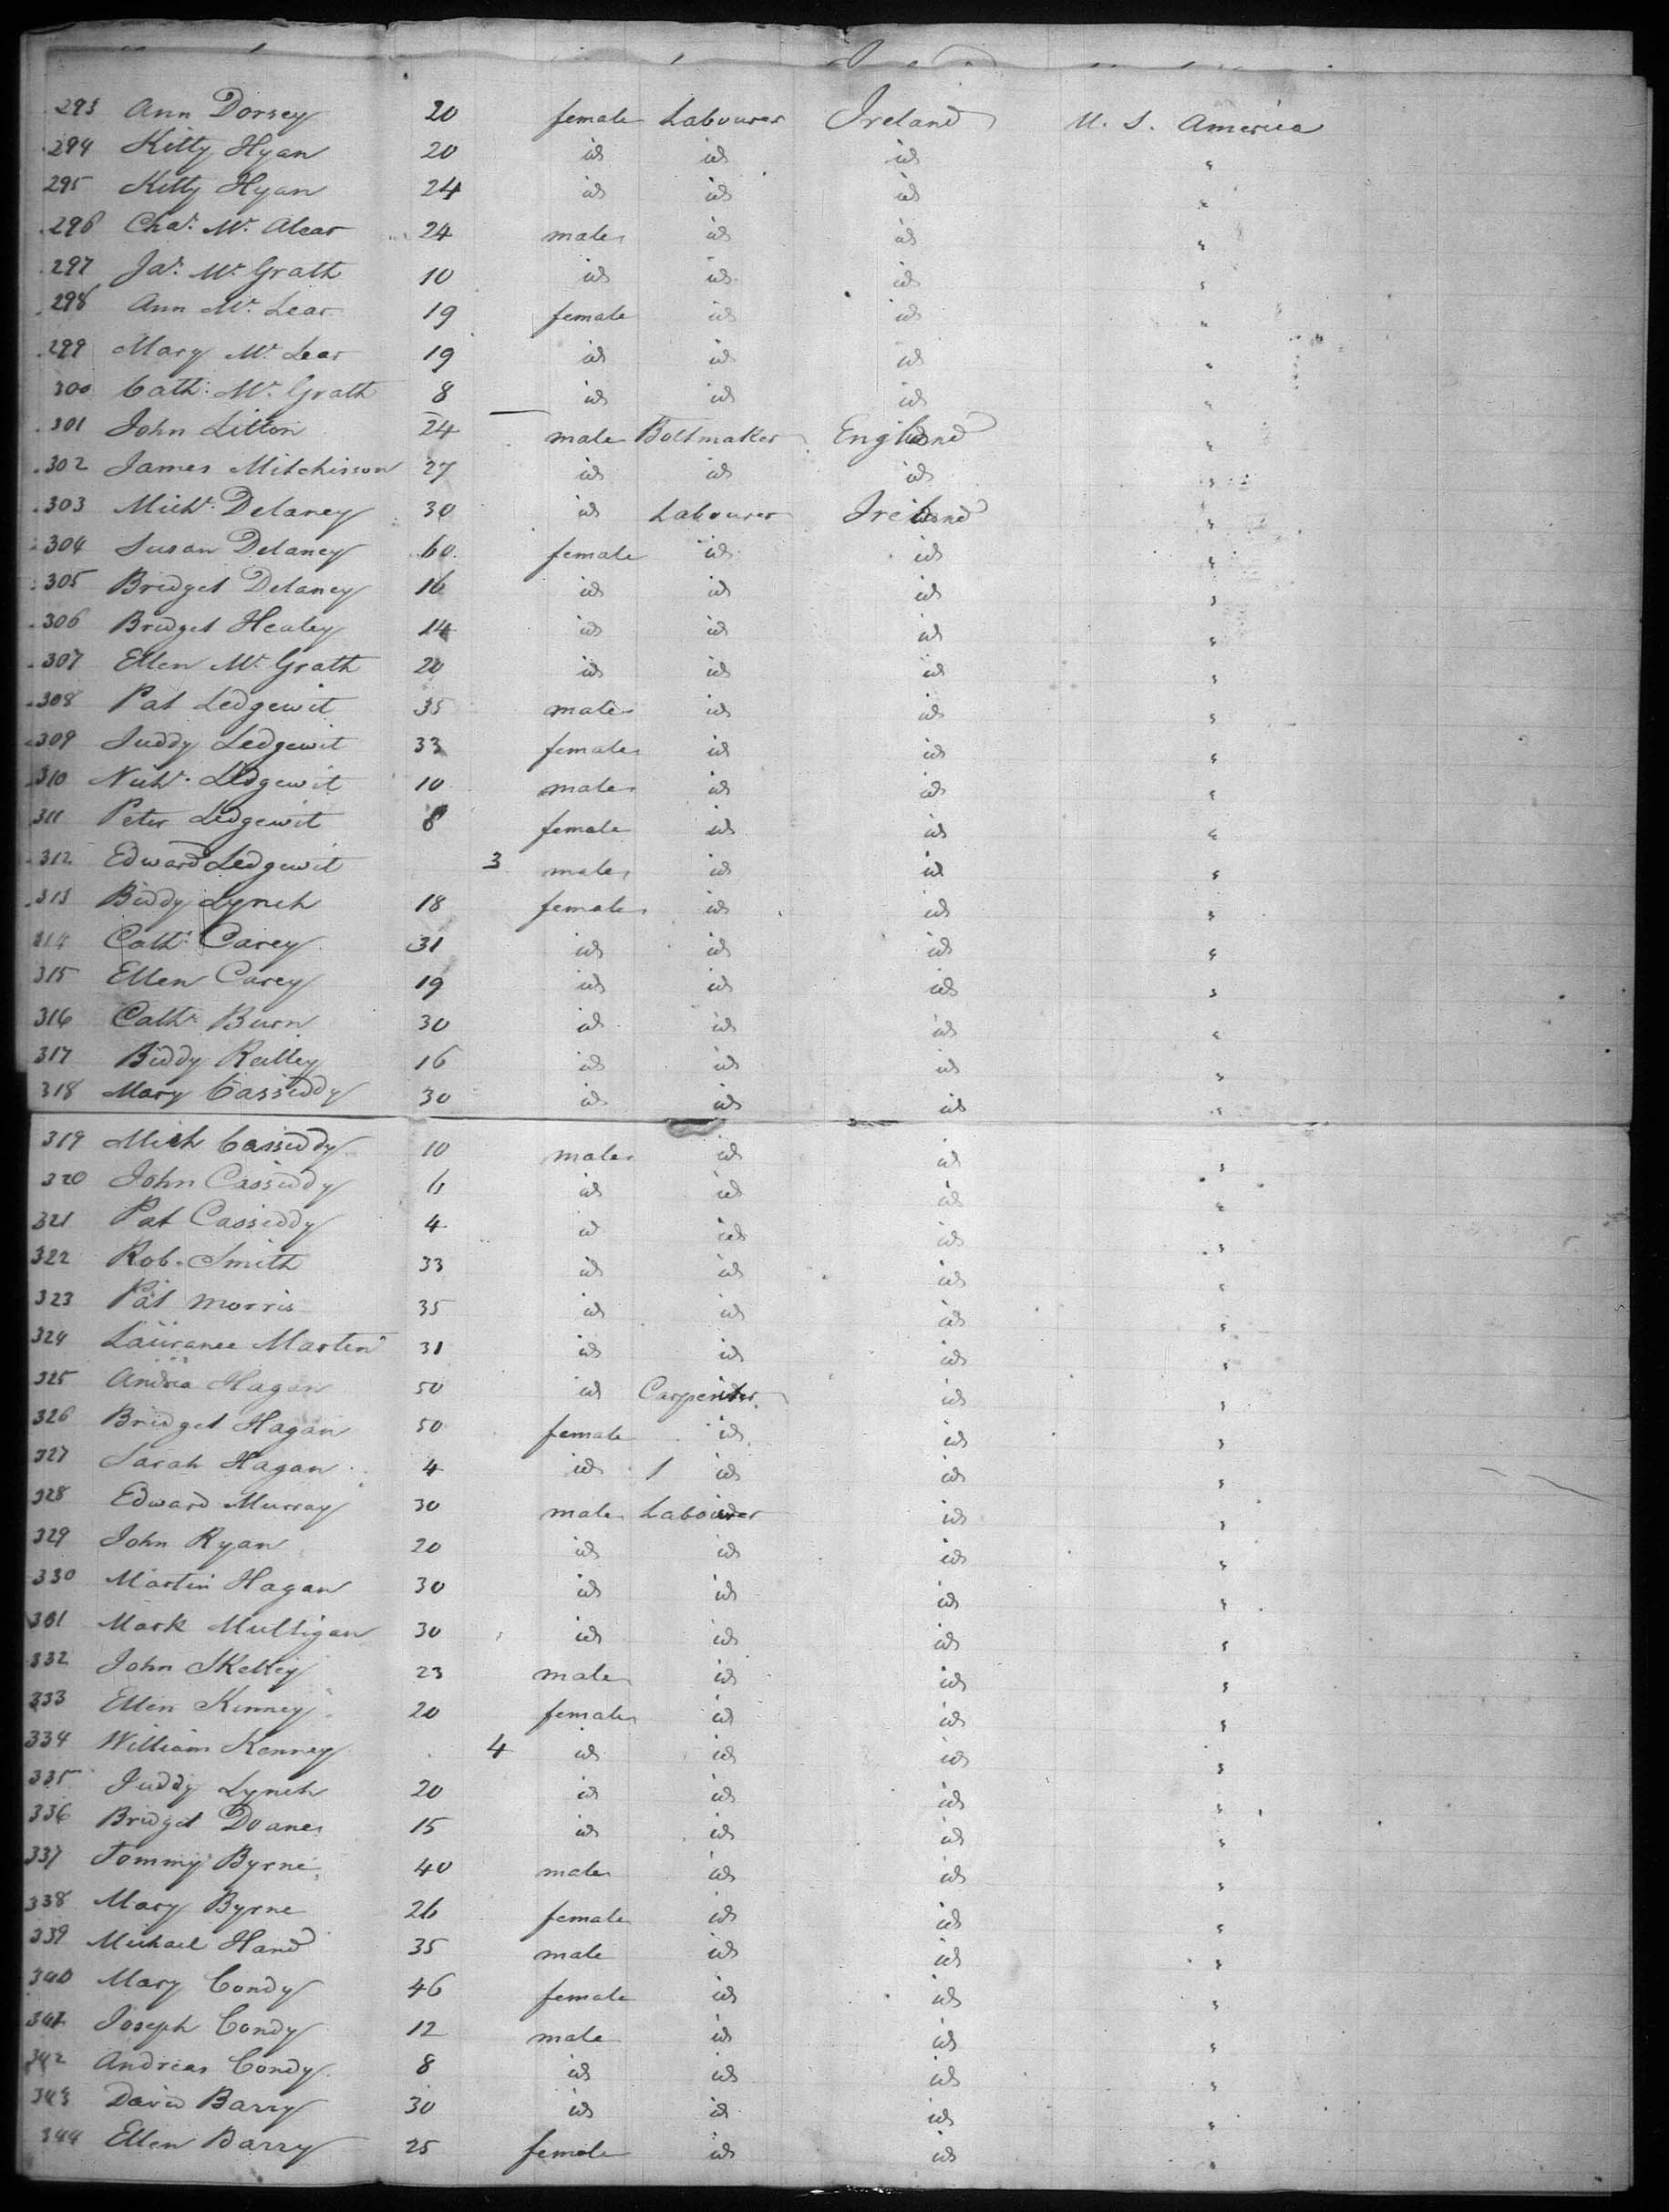 293 Ann Dorsey 20 female Labourer Ireland U. S. America
294 Kitty Hyan 20 id id id "
295 Kitty Hyan 24 id id id "
296 Chas. Mc. Alear 24 male id id "
297 Jas. Mc. Grath 10 id id id "
298 Ann Mc. Lear 19 female id id "
299 Mary Mc. Lear 19 id id id "
300 Cath: Mc. Grath 8 id id id "
301 John Litton 24 male Boltmaker England "
302 James Mitchisson 27 id id id "
303 Michl. Delaney 30 id Labourer Ireland "
304 Susan Delaney 60 female id id "
305 Bridget Delaney 16 id id id "
306 Bridget Healey 14 id id id "
307 Ellen Mc. Grath 20 id id id "
308 Pat Ledgewit 35 male id id "
309 Juddy Ledgewit 33 female id id "
310 Nichs. Ledgewit 10 male id id "
311 Peter Ledgewit 8 female id id "
312 Edward Ledgewit 3 male id id "
313 Biddy Lynch 18 female id id "
314 Cath. Carey 31 id id id "
315 Ellen Carey 19 id id id "
316 Cath. Burn 30 id id id "
317 Biddy Reilley 16 id id id "
318 Mary Cassiddy 30 id id id "
319 Mich Cassiddy 10 male id id "
320 John Cassiddy 6 id id id "
321 Pat Cassiddy 4 id id id "
322 Rob. Smith 33 id id id "
323 Pat Morris 35 id id id "
324 Laurance Martin 31 id id id "
325 Andrea Hagan 50 id Carpenter id "
326 Bridget Hagan 50 female id id "
327 Sarah Hagan 4 id id id "
328 Edward Murray 30 male Labourer id "
329 John Ryan 20 id id id "
330 Martin Hagan 30 id id id "
331 Mark Mulligan 30 id id id "
332 John Skelley 23 male id id "
333 Ellen Kenney 20 female id id "
334 William Kenney 4 id id id "
335 Juddy Lynch 20 id id id "
336 Bridget Doane 15 id id id "
337 Tommy Byrne 40 male id id "
338 Mary Byrne 26 female id id "
339 Michael Hand 35 male id id "
340 Mary Condy 46 female id id "
341 Joseph Condy 12 male id id "
342 Andreas Condy 8 id id id "
343 David Barry 30 id id id "
344 Ellen Barry 25 female id id "